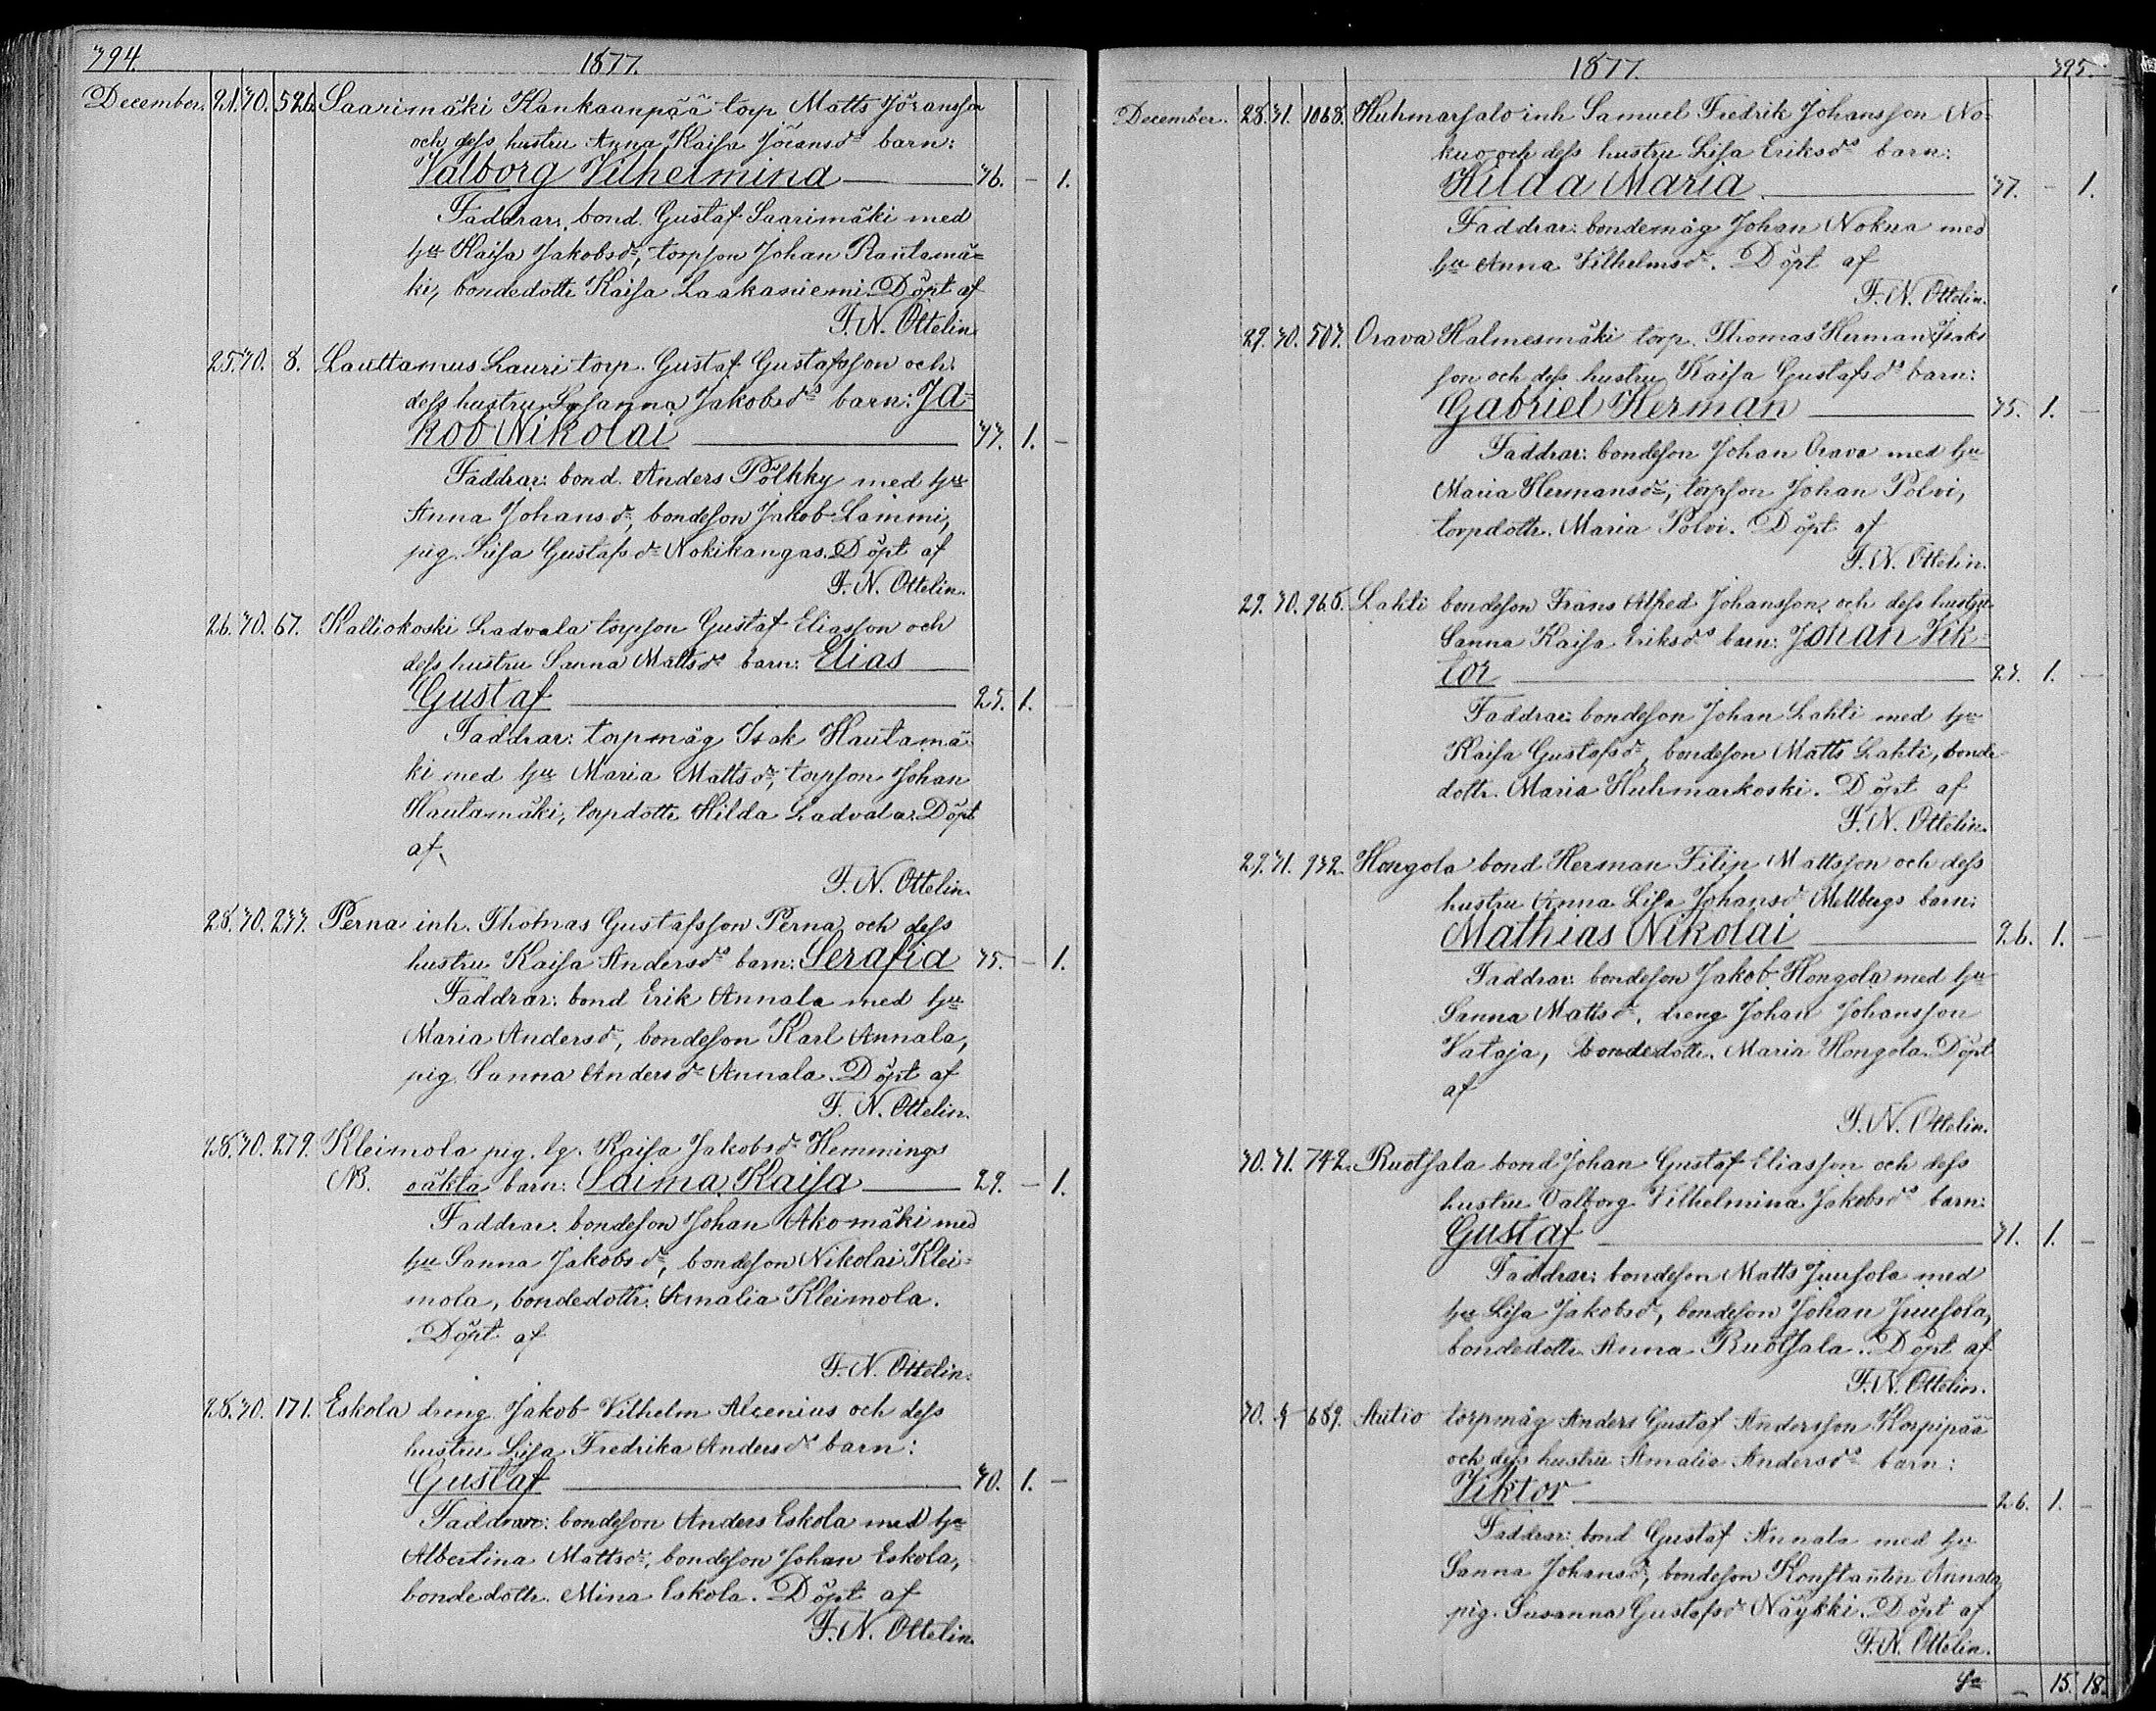 394. 1877.
December. 21. 30. 526. Saarimäki Kankaanpää torp Matts Jöransson
och dess hustru Anna Kaisa Jöransdr barn:
Valborg Vilhelmina 36. - 1.
Faddrar: bond. Gustaf Saarimäki med
hu Kaisa Jakobsdr, torpson Johan Rautamä=
ki, bondedottr Kaisa Laakaniemi. Döpt af
F. N. Ottelin.
25. 30. 8. Lauttamus Lauri torp. Gustaf Gustafsson och
dess hustru Susanna Jakobsds barn: Ja=
kob Nikolai 37. 1. -
Faddrar: bond. Anders Pölkky med hu
Anna Johansdr, bondeson Jakob Lammi,
pig. Lisa Gustafsdr Nokikangas. Döpt af
F. N. Ottelin.
26. 30. 67. Kalliokoski Ladvala torpson Gustaf Eliasson och
dess hustru Sanna Mattsds barn: Elias
Gustaf 25. 1. -
Faddrar: torpmåg Isak Hautamä
ki med hu Maria Mattsdr, torpson Johan
Hautamäki, torpdottr Hilda Ladvala. Döpt
af
F. N. Ottelin.
28. 30. 233. Perna inh. Thomas Gustafsson Perna och dess
hustru Kaisa Andersds barn: Serafia 35. - 1.
Faddrar: bond Erik Annala med hu
Maria Andersdr, bondeson Karl Annala,
pig. Sanna Andersdr Annala. Döpt af
F. N. Ottelin.
28. 30. 279. Kleimola pig. lg. Kaisa Jakobsdr Hemmings
NB. oäkta barn: Saima Kaisa 29. - 1.
Faddrar: bondeson Johan Akomäki med
hu Sanna Jakobsdr, bondeson Nikolai Klei=
mola, bondedottr. Amalia Kleimola.
Döpt af
F. N. Ottelin.
28. 30. 171. Eskola dreng Jakob Vilhelm Alcenius och dess
hustru Lisa Fredrika Andersds barn:
Gustaf 30. 1. -
Faddrar: bondeson Anders Eskola med hu
Albertina Mattsdr, bondeson Johan Eskola,
bondedottr. Mina Eskola. Döpt af
F. N. Ottelin.
1877. 395.
December. 28. 31. 1068. Huhmarsalo inh Samuel Fredrik Johansson No=
kuo och dess hustru Lisa Eriksds barn:
Hilda Maria 37. - 1.
Faddrar: bondemåg Johan Nokua med
hu Anna Vilhelmsdr. Döpt af
F. N. Ottelin.
29. 30. 507. Orava Halmesmäki torp. Thomas Herman Isaks
son och dess hustru Kaisa Gustafsds barn:
Gabriel Herman 35. 1. -
Faddrar: bondeson Johan Orava med hu
Maria Hermansdr, torpson Johan Polvi,
torpdottr. Maria Polvi. Döpt af
F. N. Ottelin.
29. 30. 965. Lahti bondeson Frans Alfred Johansson och dess hustru
Sanna Kaisa Eriksds barn: Johan Vik=
tor 23. 1. -
Faddrar: bondeson Johan Lahti med hu
Kaisa Gustafsdr, bondeson Matts Lahti, bonde
dottr. Maria Huhmarkoski. Döpt af
F. N. Ottelin.
29. 31. 932. Hongola bond Herman Filip Mattsson och dess
hustru Anna Lisa Johansdr Mellbergs barn:
Mathias Nikolai 26. 1. -
Faddrar: bondeson Jakob Hongola med hu
Sanna Mattsdr, dreng Johan Johansson
Vataja, bondedottr. Maria Hongola. Döpt
af
F. N. Ottelin.
30. 31. 742. Ruotsala bond Johan Gustaf Eliasson och dess
hustru Valborg Vilhelmina Jakobsds barn:
Gustaf 31. 1. -
Faddrar: bondeson Matts Juusola med
hu Lisa Jakobsdr, bondeson Johan Juusola,
bondedottr Anna Ruotsala. Döpt af
F. N. Ottelin.
30. 689. Autio torpmåg Anders Gustaf Andersson Korpipää
och dess hustru Amalia Andersds barn:
Viktor 26. 1. -
Faddrar: bond Gustaf Annala med hu
Sanna Johansdr, bondeson Konstantin Annala,
pig. Susanna Gustafsdr Näykki. Döpt af
F. N. Ottelin.
Sa - 15. 18.